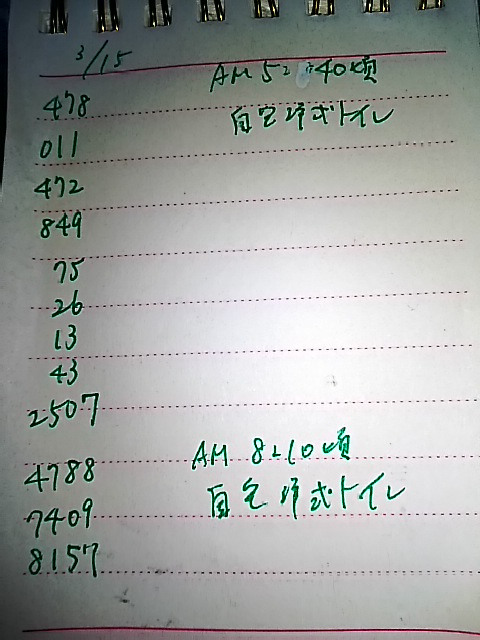 3/15
AM 5:40頃
478
自宅洋式トイレ
011
472
849
75
26
13
43
2507
AM 8:10頃
4788
自宅洋式トイレ
7409
8157